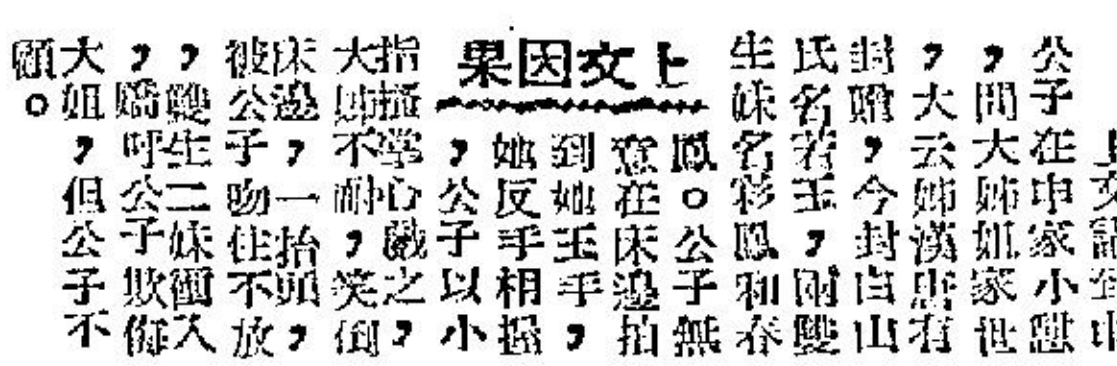 上文說到申
公子在申家小憇
，問大姊姐家世
，大云姊漢唐有
封贈，今封白山
氏名若玉，剛雙
生妹名彩鳳和春
上文因果
鳳。公子無
意在床邊拍
到她玉手，
她反手相握
，公子以小
指搔掌心戲之，
大姊不耐，笑倒
床邊，一抬頭，
被公子吻住不放
，雙生二妹圍入
，嬌呼公子欺侮
大姐，但公子不
顧。